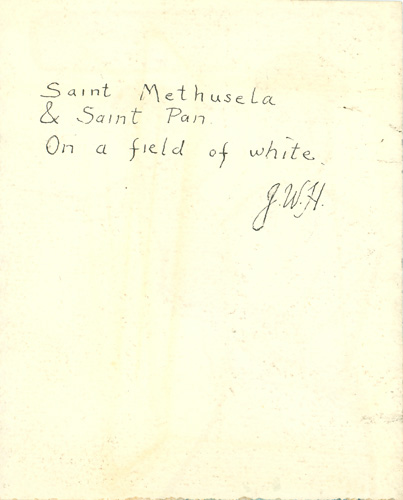 Saint Methusela
& Saint Pan
On a field of white.
J.W.H.